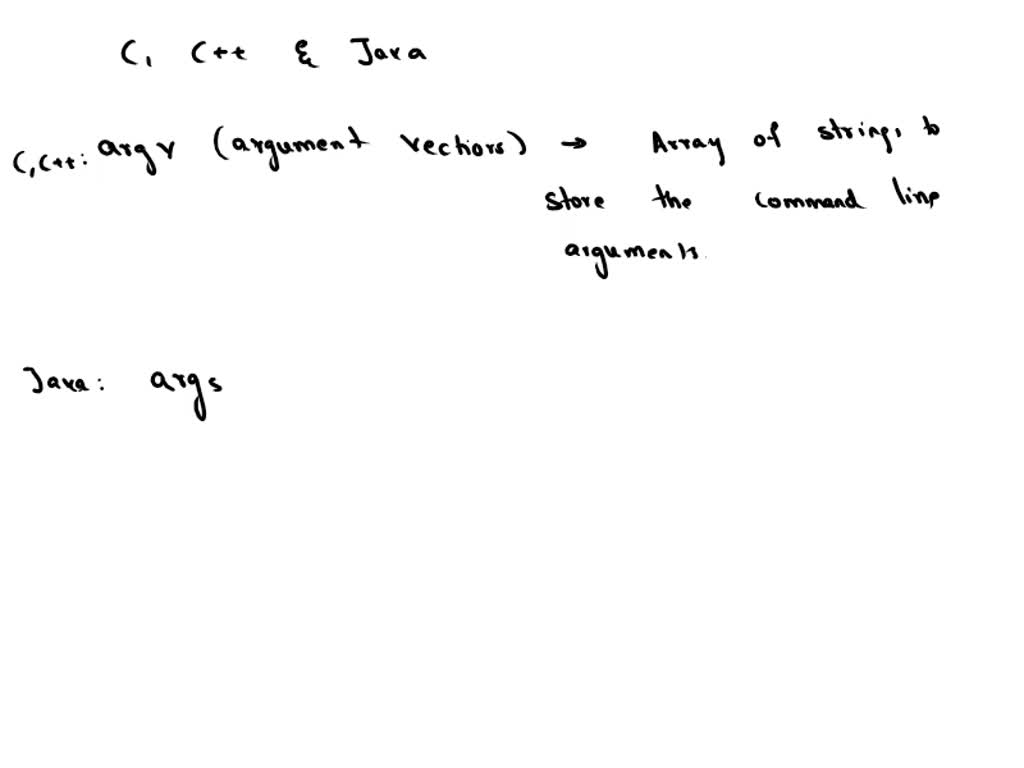 C, C++ & Java
C, C++: argv (argument vectiors) → Array of strings to
store the command line
arguments.
Java: args